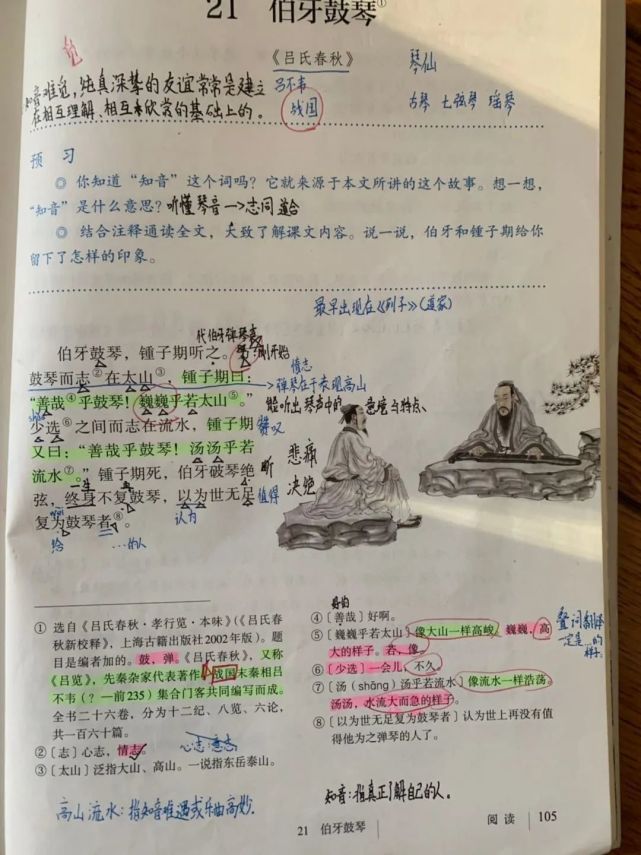 21 伯牙鼓琴①
《吕氏春秋》
琴仙
吕不韦
战国
古琴 七弦琴 瑶琴
觅
知音难觅,纯真深挚的友谊常常是建立
在相互理解、相互欣赏的基础上的。
预 习
◎ 你知道“知音”这个词吗?它就来源于本文所讲的这个故事。想一想,
“知音”是什么意思?听懂琴音—>志同道合
◎ 结合注释通读全文,大致了解课文内容。说一说,伯牙和锺子期给你
留下了怎样的印象。
最早出现在《列子》(道家)
代伯牙弹琴声
伯牙鼓琴,锺子期听之。方
刚开始
鼓琴而志②在太山③,锺子期曰:
情志
弹琴在于表现高山
“善哉④乎鼓琴!巍巍乎若太山⑤。”
能听出琴声中的意境与特点、
少选⑥之间而志在流水,锺子期
赞叹
又曰:“善哉乎鼓琴!汤汤乎若
流水⑦。”锺子期死,伯牙破琴绝
断
悲痛
决绝
一生
再
弦,终身不复鼓琴,以为世无足
值得
认为
复为鼓琴者⑧。
给
…的人
① 选自《吕氏春秋·孝行览·本味》(《吕氏春
秋新校释》,上海古籍出版社2002年版)。题
目是编者加的。鼓,弹。《吕氏春秋》,又称
《吕览》,先秦杂家代表著作,战国末秦相吕
不韦(?—前235)集合门客共同编写而成。
全书二十六卷,分为十二纪、八览、六论,
共一百六十篇。
② 〔志〕心志,情志。
心志;意志
③ 〔太山〕泛指大山、高山。一说指东岳泰山。
④ 〔善哉〕好啊。
⑤ 〔巍巍乎若太山〕像大山一样高峻。巍巍,高
大的样子。若,像。
⑥ 〔少选〕一会儿,不久。
⑦ 〔汤(shāng)汤乎若流水〕像流水一样浩荡。
汤汤,水流大而急的样子。
⑧ 〔以为世无足复为鼓琴者〕认为世上再没有值
得他为之弹琴的人了。
叠词翻译
一定是…的
样子。
高山流水:指知音难遇或乐曲高妙.
知音:指真正了解自己的人。
21 伯牙鼓琴
阅读
105